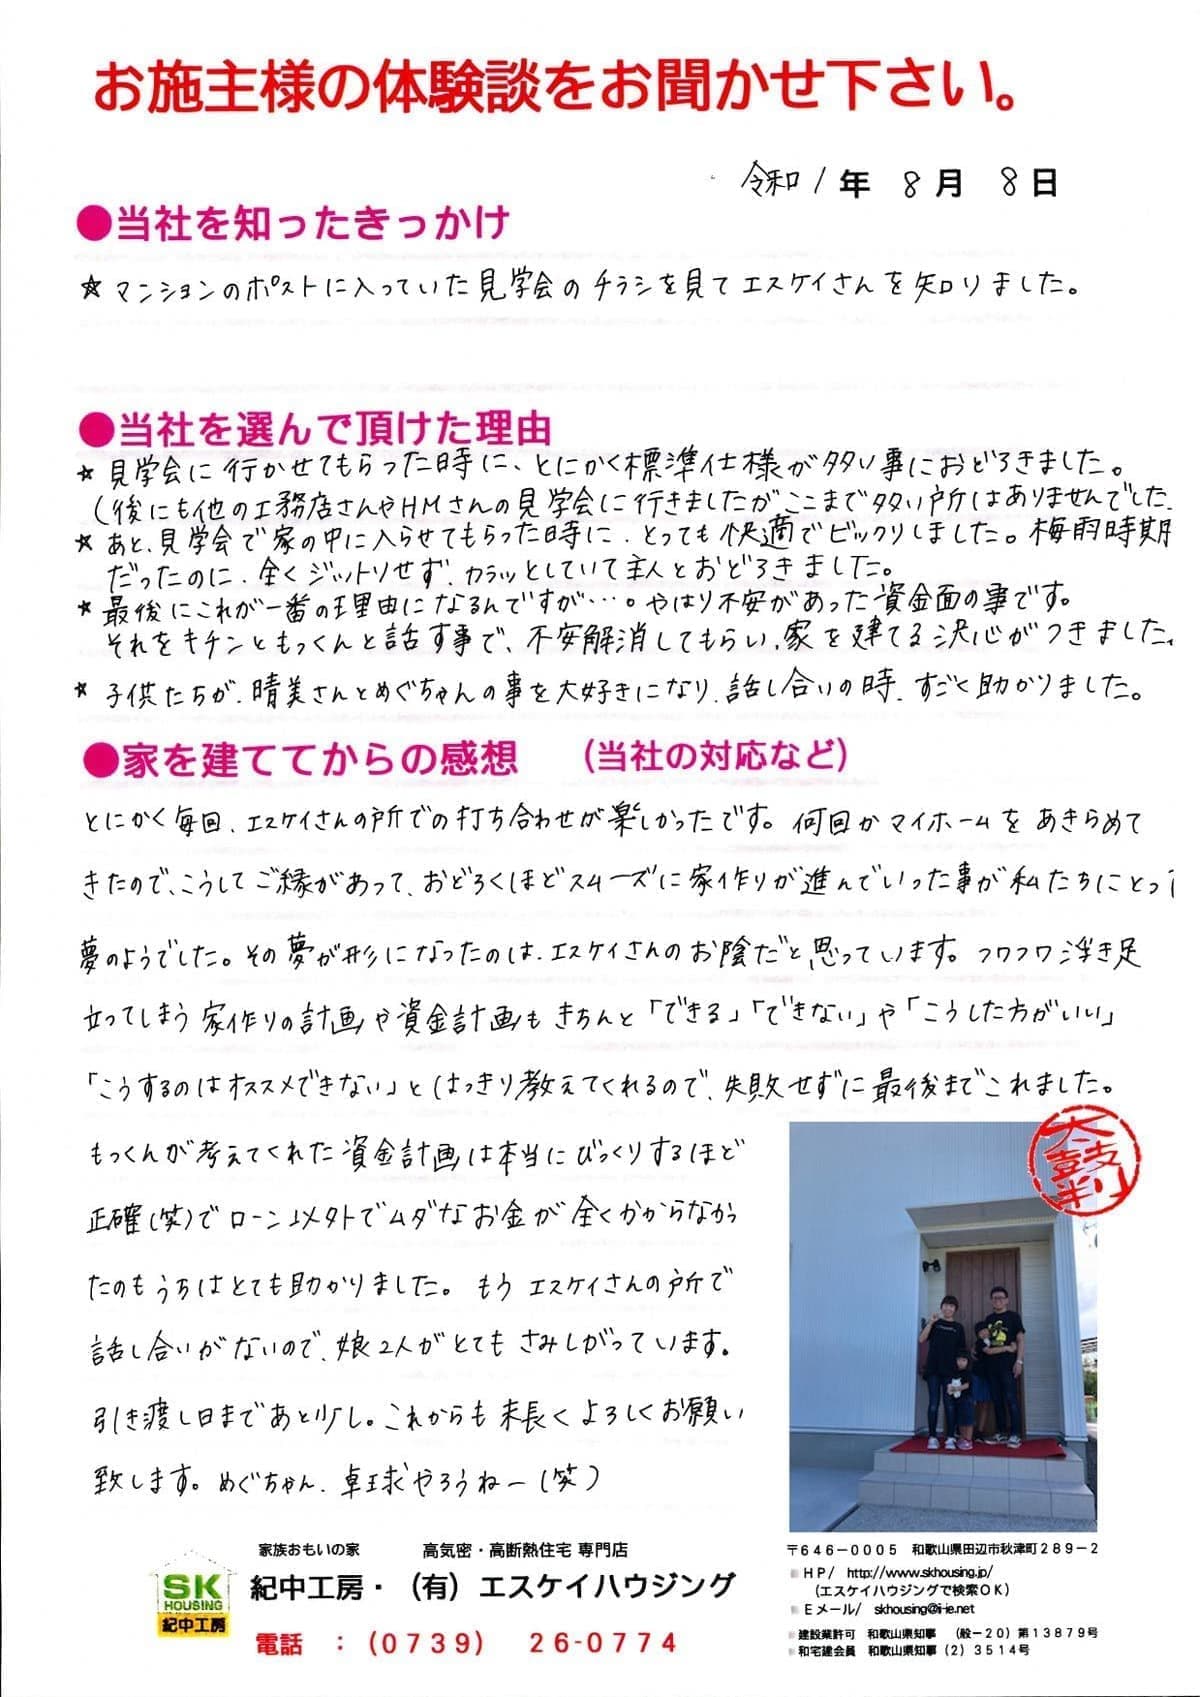 お施主様の体験談をお聞かせ下さい。
令和1年 8月 8日
●当社を知ったきっかけ
☆マンションのポストに入っていた見学会のチラシを見てエスケイさんを知りました。
●当社を選んで頂けた理由
★見学会に行かせてもらった時に、とにかく標準仕様が多い事におどろきました。
(後にも他の工務店さんやHMさんの見学会に行きましたがここまで多い所はありませんでした.
★あと、見学会で家の中に入らせてもらった時に、とっても快適でビックリしました。梅雨時期
だったのに、全くジットリせず、カラッとしていて主人とおどろきました。
★最後にこれが一番の理由になるんですが…。やはり不安があった資金面の事です。
それをキチンともっくんと話す事で、不安解消してもらい、家を建てる決心がつきました。
★子供たちが、晴美さんとめぐちゃんの事を大好きになり、話し合いの時、すごく助かりました。
●家を建ててからの感想 (当社の対応など)
とにかく毎回、エスケイさんの所での打ち合わせが楽しかったです。何回かマイホームをあきらめて
きたので、こうしてご縁があって、おどろくほどスムーズに家作りが進んでいった事が私たちにとって
夢のようでした。その夢が形になったのは、エスケイさんのお陰だと思っています。フワフワ浮き足
立ってしまう家作りの計画や資金計画もきちんと「できる」「できない」や「こうした方がいい」
「こうするのはオススメできない」とはっきり教えてくれるので、失敗せずに最後までこれました。
もっくんが考えてくれた資金計画は本当にびっくりするほど
正確(笑)でローン以外でムダなお金が全くかからなかっ
たのもうちはとても助かりました。もうエスケイさんの所で
話し合いがないので、娘2人がとてもさみしがっています。
引き渡し日まであと少し。これからも末長くよろしくお願い
致します。めぐちゃん、卓球やろうねー(笑)
太鼓判
家族おもいの家 高気密・高断熱住宅 専門店
SK
HOUSING
紀中工房
紀中工房・(有)エスケイハウジング
電話 :(0739) 26-0774
〒646-0005 和歌山県田辺市秋津町289-2
HP/ http://www.skhousing.jp/
(エスケイハウジングで検索OK)
Eメール/ skhousing@i-ie.net
建設業許可 和歌山県知事 (般-20)第13879号
和宅建会員 和歌山県知事(2)3514号